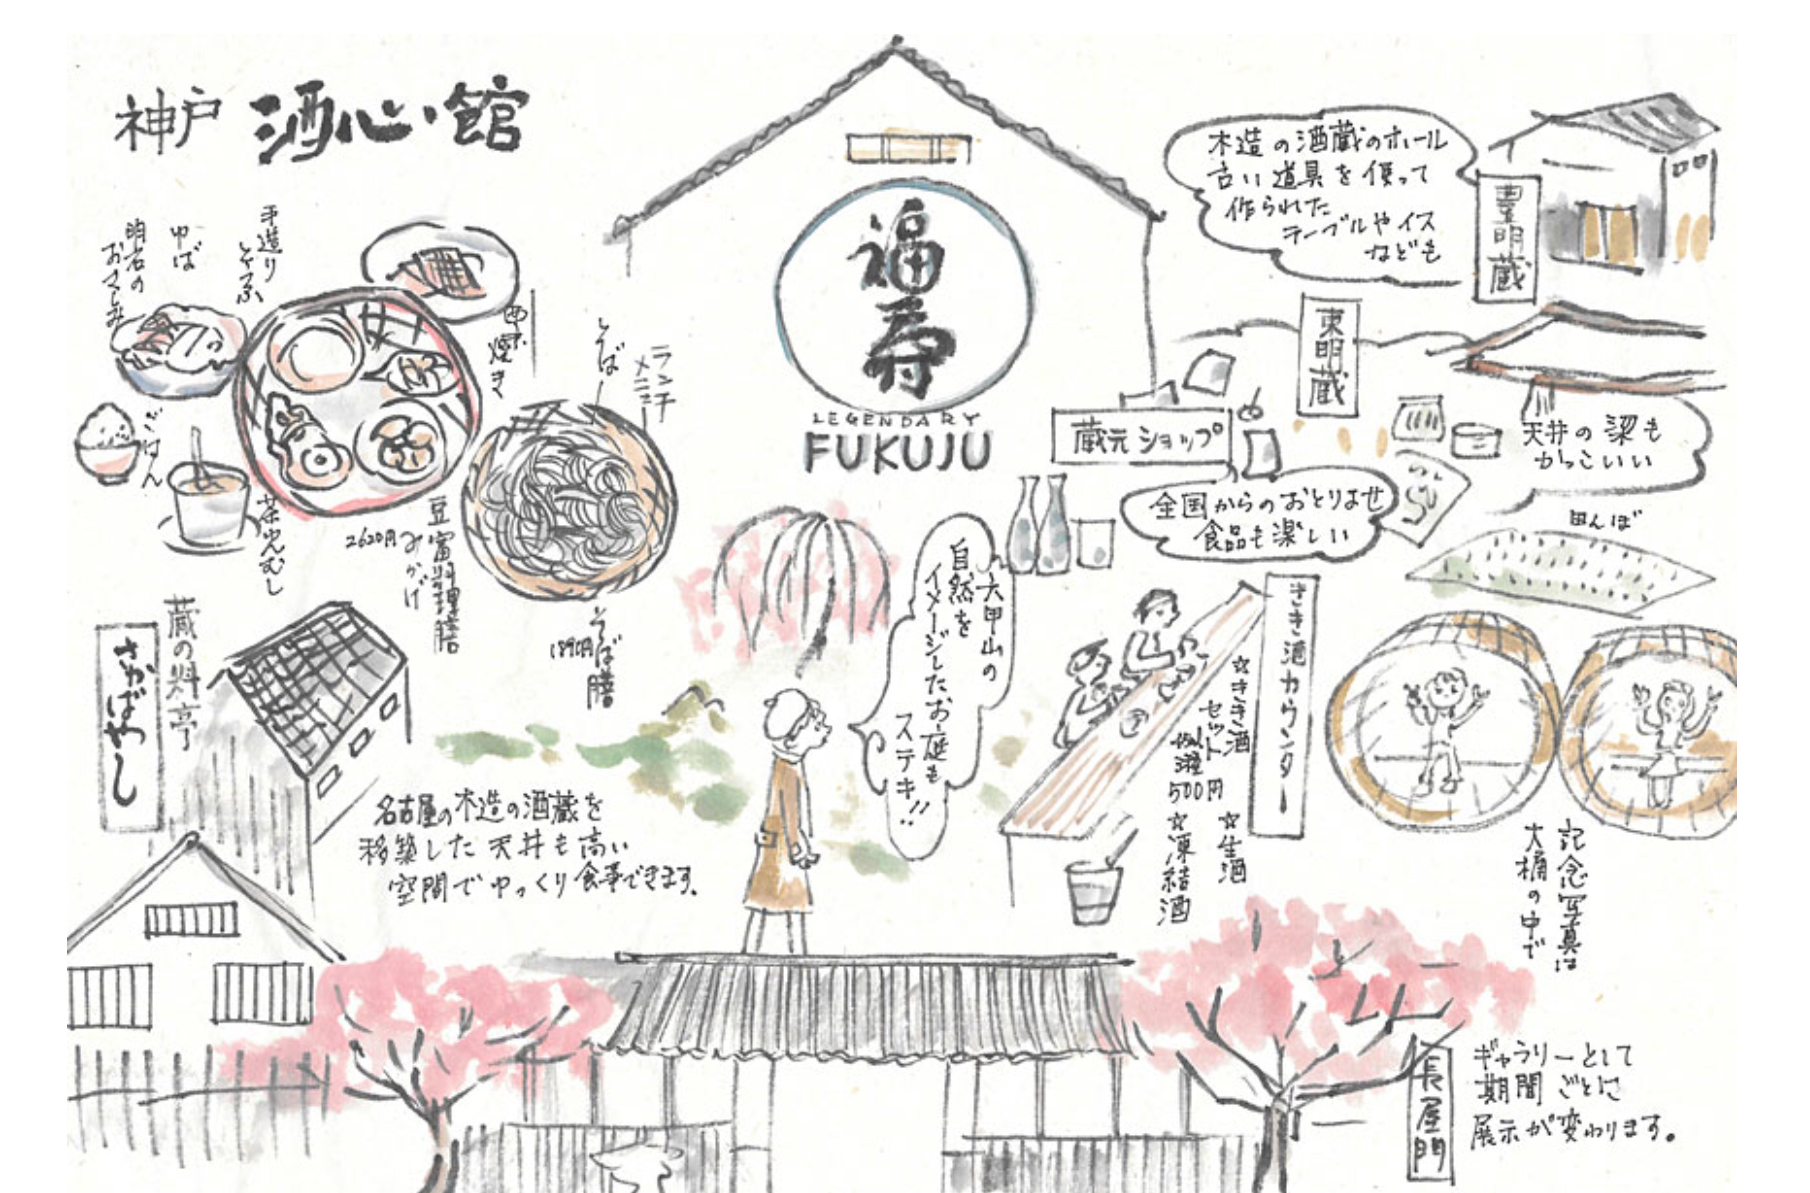 神戸 酒心館
手造り
とうふ
ゆば
明石の
おさしみ
西京焼き
ごはん
茶わんむし
豆富料理膳
みかげ
2620円
ランチ
メニュー
そば
そば膳
1890円
福寿
LEGENDARY
FUKUJU
木造の酒蔵のホール
古い道具を使って
作られた
テーブルやイス
なども
豊明蔵
東明蔵
天井の梁も
かっこいい
蔵元ショップ
全国からのおとりよせ
食品も楽しい
田んぼ
六甲山の
自然を
イメージしたお庭も
ステキ!!
きき酒カウンター
☆きき酒
セット
500円
☆生酒
☆凍結酒
記念写真は
大桶の中で
蔵の料亭
さかばやし
名古屋の木造の酒蔵を
移築した天井も高い
空間でゆっくり食事できます。
長屋門
ギャラリーとして
期間ごとに
展示が変わります。